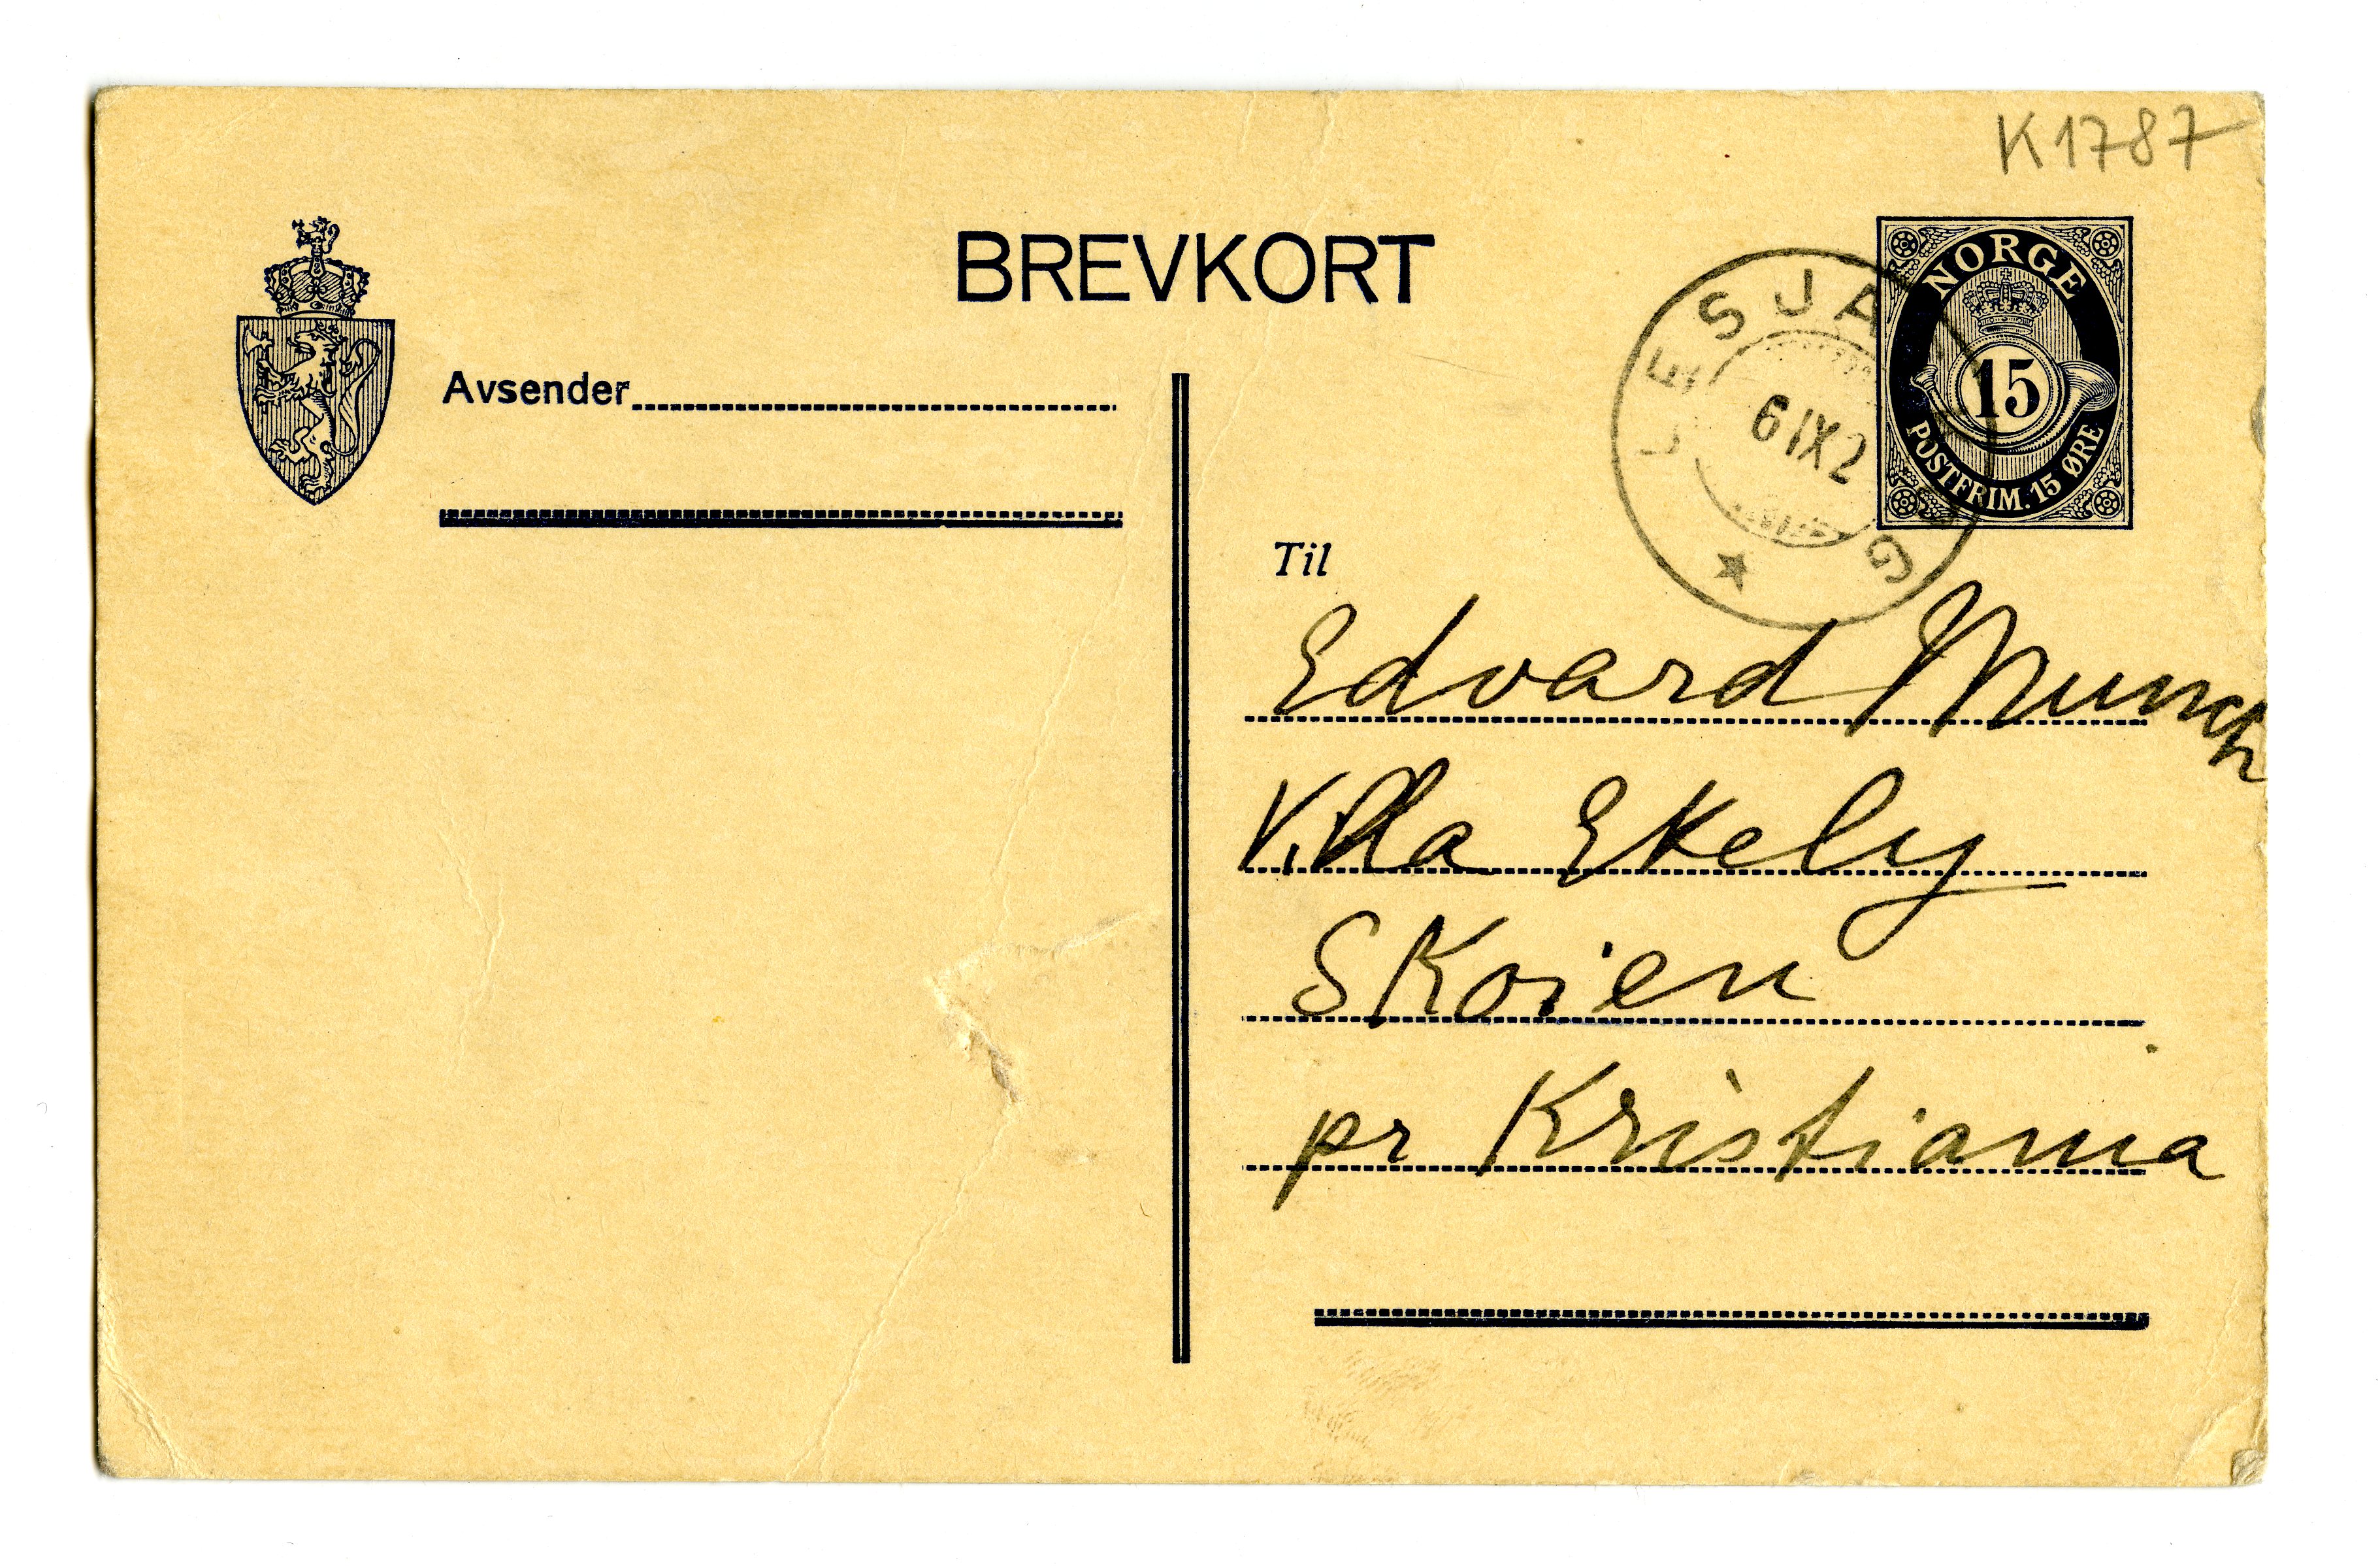 K1787
BREVKORT
NORGE
15
POSTFRIM. 15 ØRE
LESJA
6 IX 2
G
Avsender
Til
Edvard Munch
Villa Ekely
Skoien
pr Kristiania